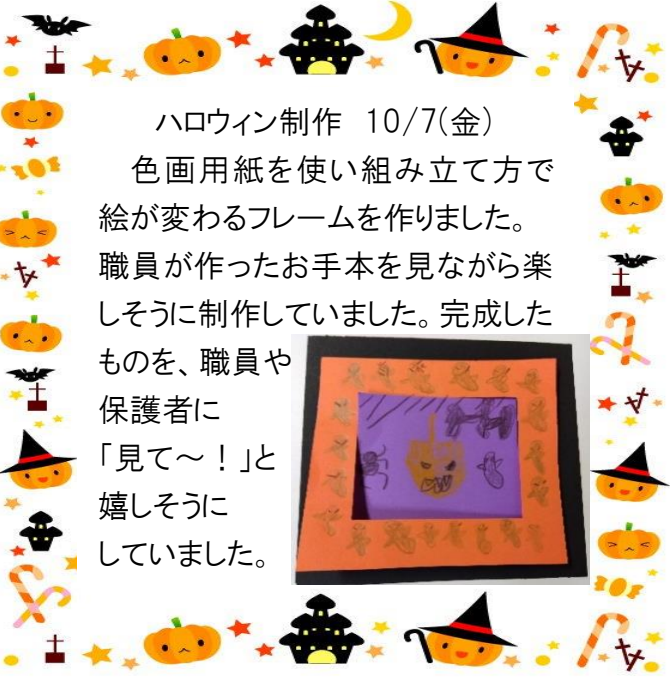 ハロウィン制作　10/7(金)
　色画用紙を使い組み立て方で
絵が変わるフレームを作りました。
職員が作ったお手本を見ながら楽
しそうに制作していました。完成した
ものを、職員や
保護者に
「見て～！」と
嬉しそうに
していました。